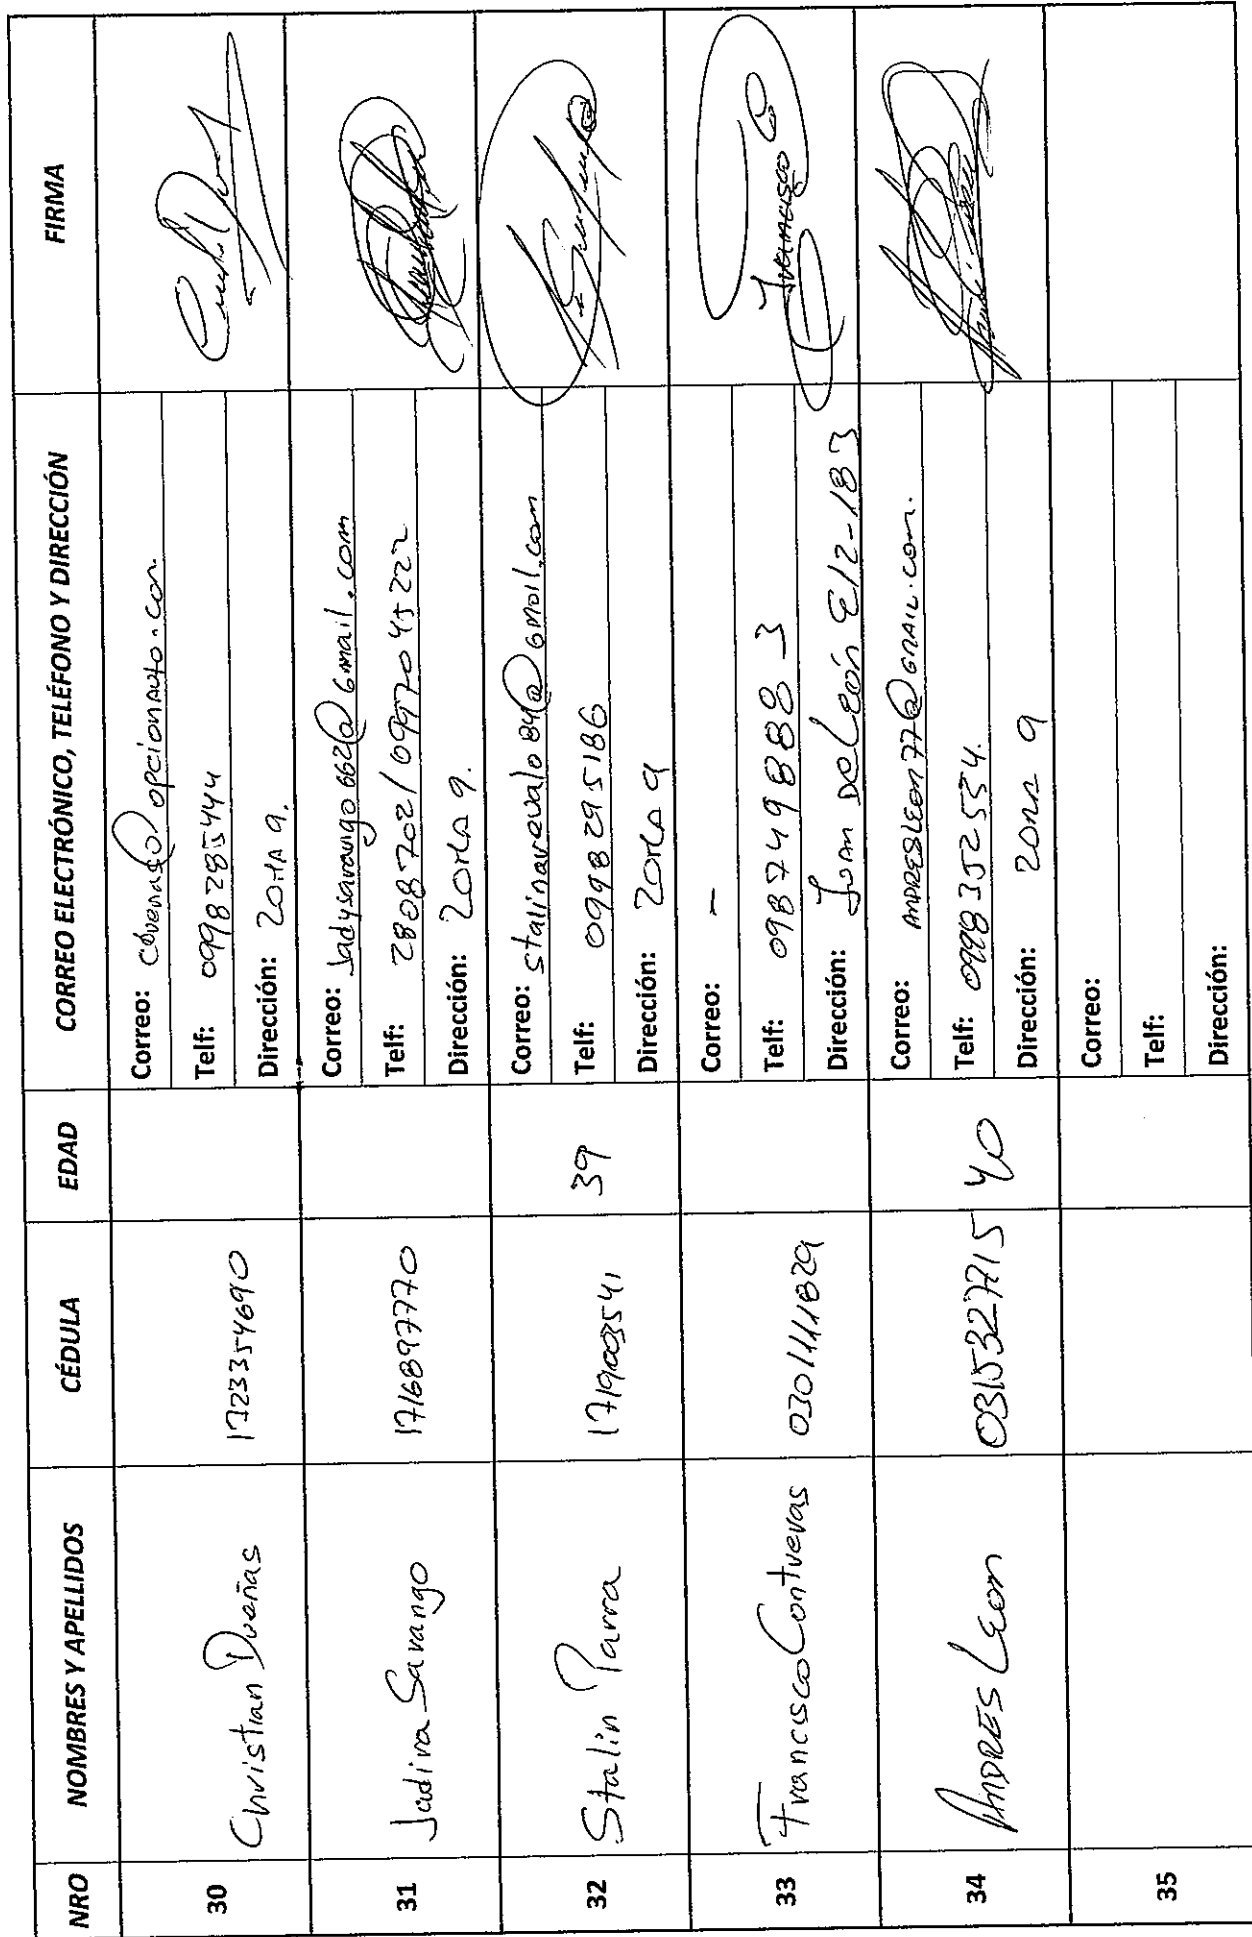 NRO NOMBRES Y APELLIDOS CÉDULA EDAD CORREO ELECTRÓNICO, TELÉFONO Y DIRECCIÓN FIRMA
30 Christian Dueñas 1723354690
Correo: cduenas@opcionauto.com.
Telf: 0998285444
Dirección: Zona 9.
31 Jadira Sarango 1716897770
Correo: Jadysarango662@Gmail.com
Telf: 2808702/0997704522
Dirección: Zona 9.
32 Stalin Parra 1719003541 39
Correo: stalinarevalo84@Gmail.com
Telf: 0998295186
Dirección: Zona 9
33 Francisco Contreras 0301111829
Correo: -
Telf: 0987498883
Dirección: Juan de León E12-183
Francisco C
34 ANDRES Leon 0315327715 40
Correo: ANDRESLEON77@GMAIL.COM.
Telf: 0998352554.
Dirección: ZONA 9
35
Correo:
Telf:
Dirección: